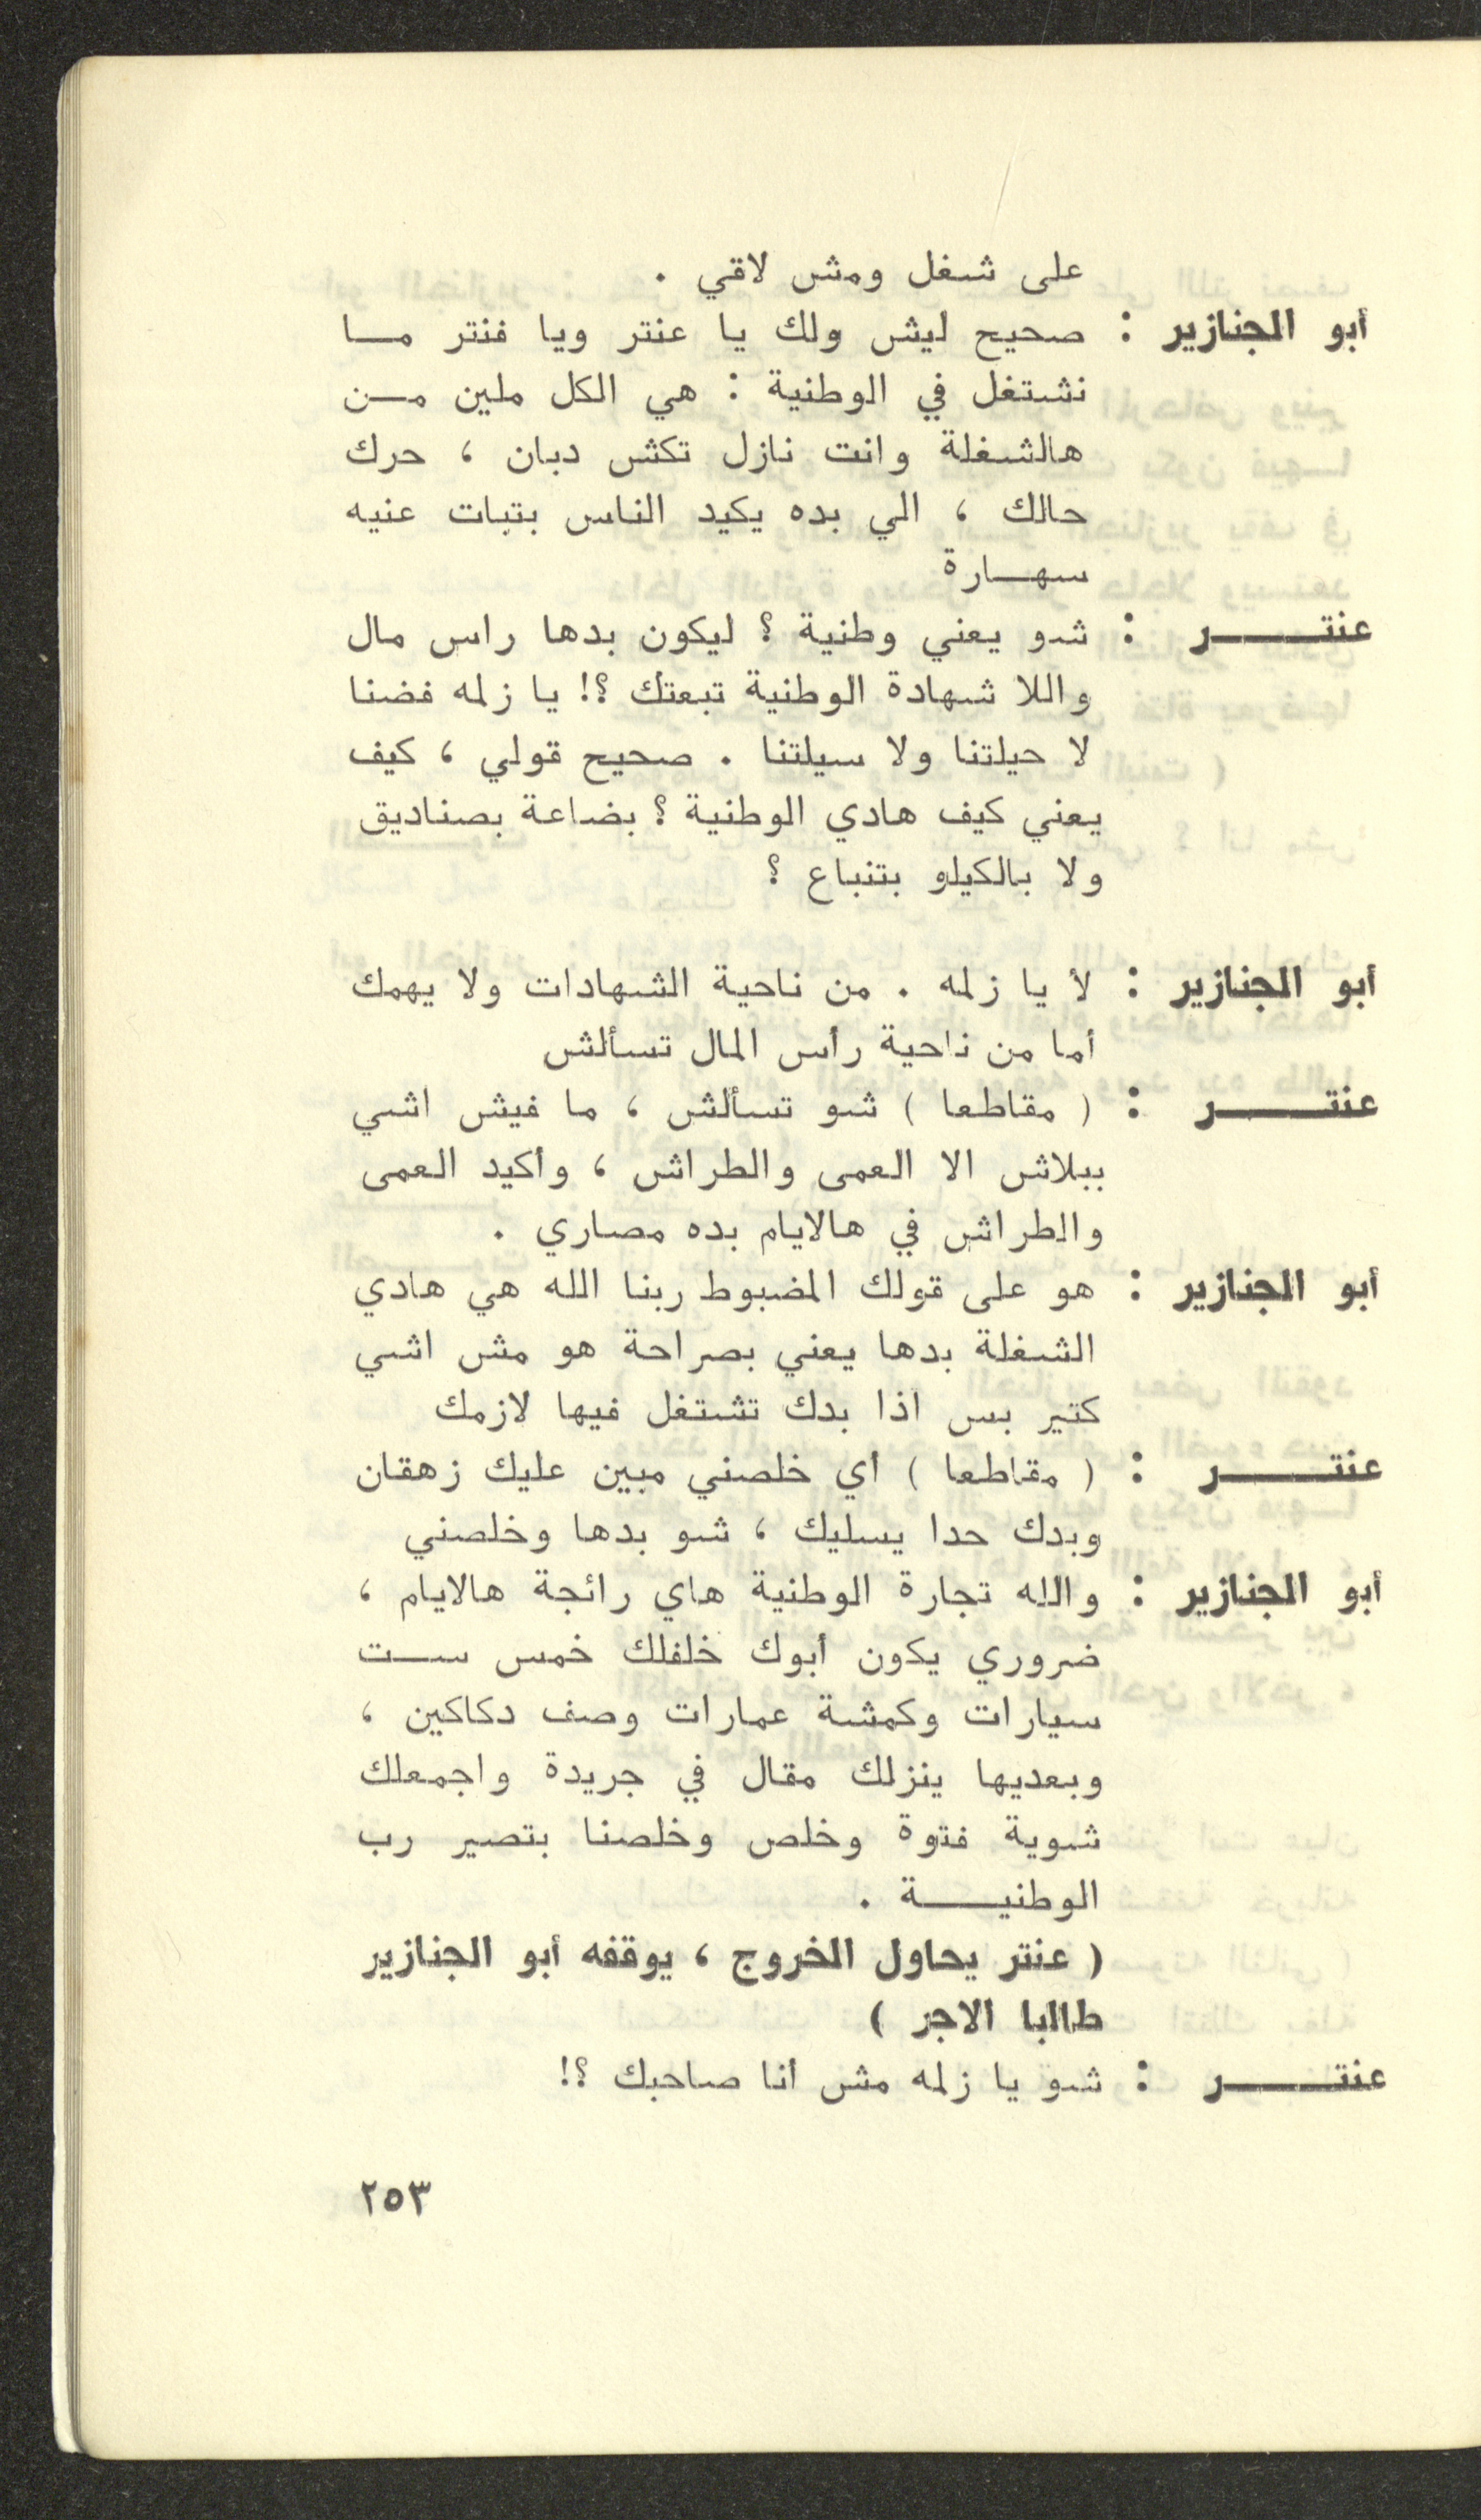 على شغل ومش لاقي .
أبو الجنازير : صحيح ليش ولك يا عنتر ويا فنتر ما
نشتغل في الوطنية : هي الكل ملين من
هالشغلة وانت نازل تكش دبان ، حرك
حالك ، الي بده يكيد الناس بتبات عنيه
سهارة
عنتر : شو يعني وطنية ؟ ليكون بدها راس مال
واللا شهادة الوطنية تبعتك ؟! يا زلمه فضنا
لا حيلتنا ولا سيلتنا . صحيح قولي ، كيف
يعني كيف هادي الوطنية ؟ بضاعة بصناديق
ولا بالكيلو بتنباع ؟
أبو الجنازير : لأ يا زلمه . من ناحية الشهادات ولا يهمك
أما من ناحية رأس المال تسألش
عنتر : ( مقاطعا ) شو تسألش ، ما فيش اشي
ببلاش الا العمى والطراش ، وأكيد العمى
والطراش في هالايام بده مصاري .
أبو الجنازير : هو على قولك المضبوط ربنا الله هي هادي
الشغلة بدها يعني بصراحة هو مش اشي
كتير بس اذا بدك تشتغل فيها لازمك
عنتر : ( مقاطعا ) أي خلصني مبين عليك زهقان
وبدك حدا يسليك ، شو بدها وخلصني
أبو الجنازير : والله تجارة الوطنية هاي رائجة هالايام ،
ضروري يكون أبوك خلفلك خمس ست
سيارات وكمشة عمارات وصف دكاكين ،
وبعديها ينزلك مقال في جريدة واجمعلك
شوية فتوة وخلص وخلصنا بتصير رب
الوطنية .
( عنتر يحاول الخروج ، يوقفه أبو الجنازير
طالبا الاجر )
عنتر : شو يا زلمه مش أنا صاحبك ؟!
٢٥٣